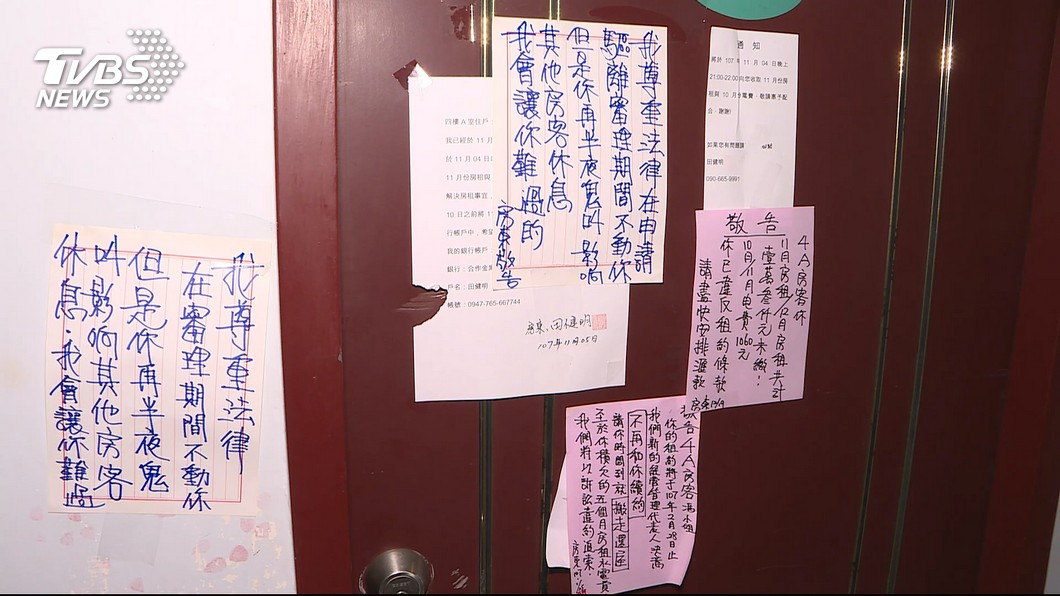 TVBS
NEWS
我尊重法律
在審理期間不動你
但是你再半夜鬼
叫影响其他房客
休息．我會讓你難過
我尊重法律在申請
驅離審理期間不動你
但是你再半夜鬼叫影响
其他房客休息
我會讓你難過的
房東敬告
四樓A室住戶
我已經於 11 月
於 11 月 04 日
11 月份房租與
解決房租事宜
10 日之前將 1
行帳戶中，希望
我的銀行帳戶
銀行：合作金庫
戶名：田健明
帳號：0947-765-667744
房東：田健明
107年11月05日
通 知
將於 107 年 11 月 04 日晚上
21:00-22:00向您收取 11 月份房
租與 10 月份電費，敬請惠予配
合，謝謝!
如果您有問題請
田健明
090-665-9991
敬告
4A房客你
11月房租/12月房租共計
壹萬叁仟元未繳！
10月/11月電費1060元
你已違反租約條款
請盡快安排滙款
敬告4A房客馮小姐
你的租約將于107年2月28日止
我們新的經營管理代表人決議
不再和你續約
請你時間到就搬走還屋
至於你積欠的五個月房租水電費
我們將以訴訟盡約追索！